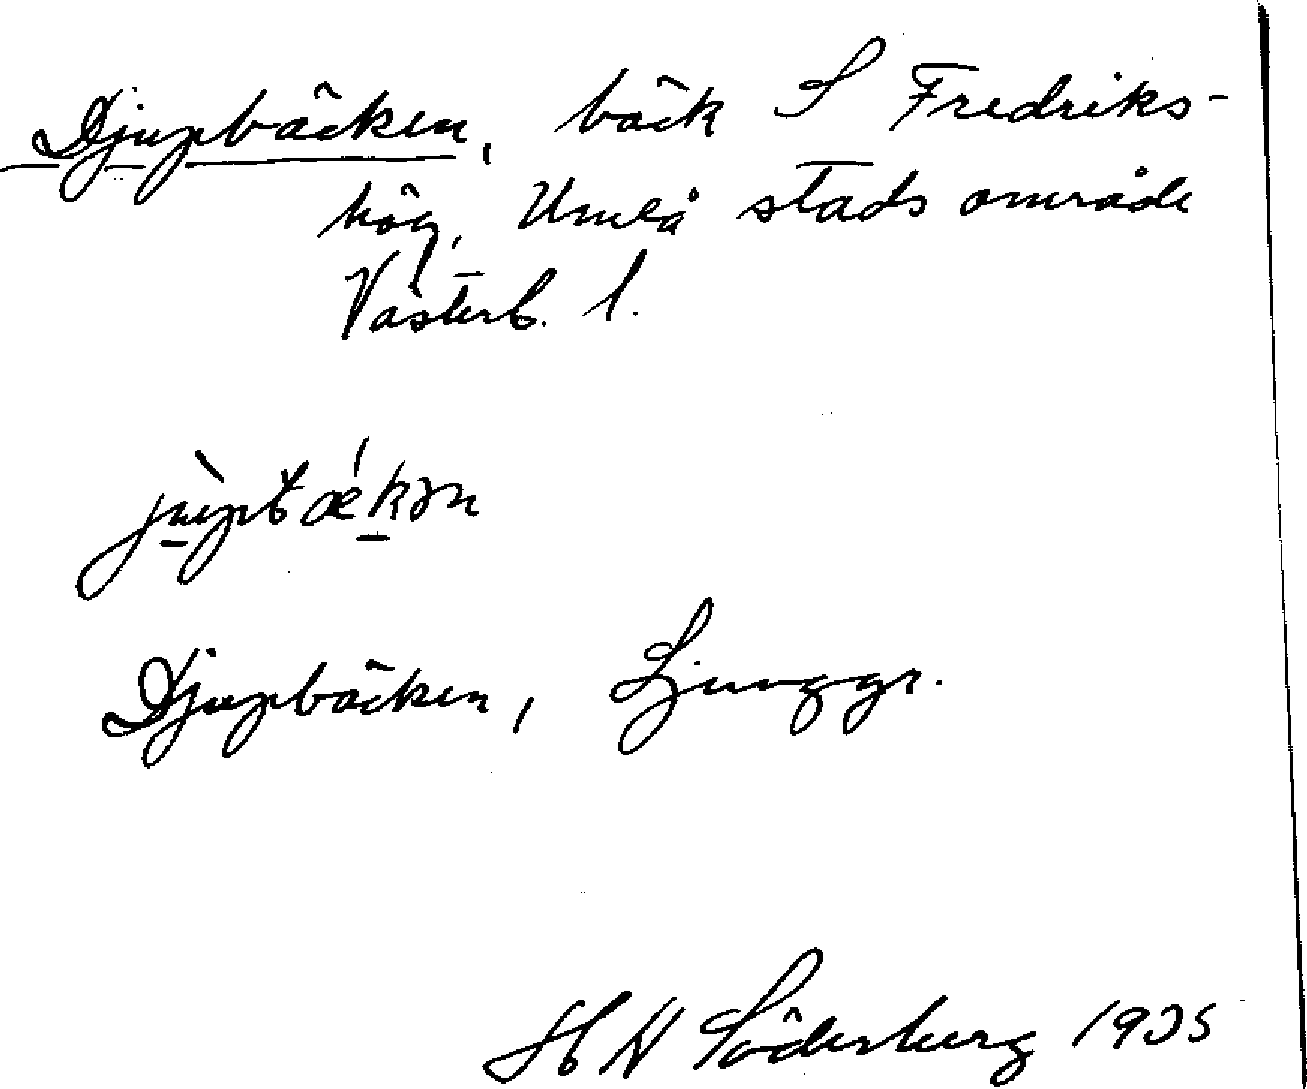 Djupbäcken, bäck S Fredriks-
hög, Umeå stads område
Västerb. l.
jùpbǽkən
Djupbäcken, Ljunggr.
H W Söderberg 1935